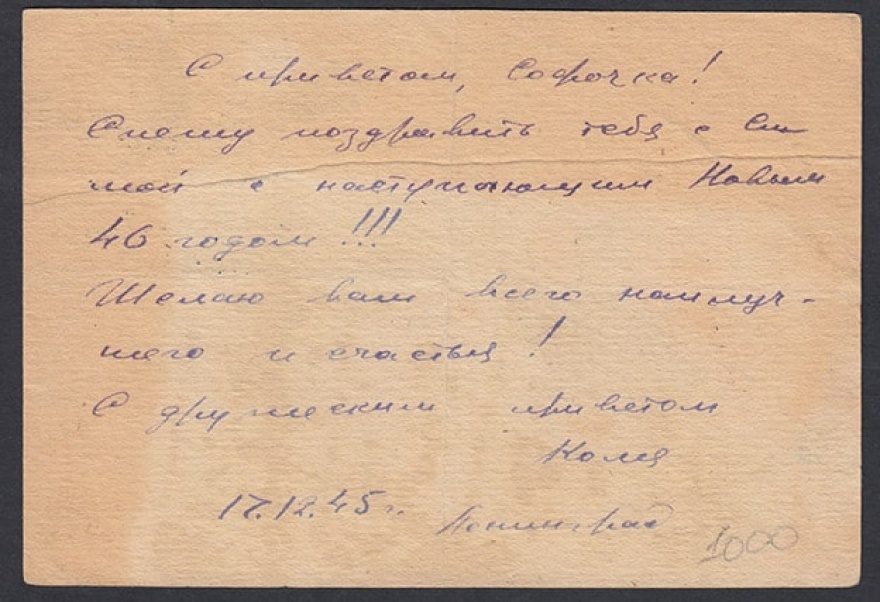 С приветом, Софочка!
Спешу поздравить тебя с Си
мой с наступающим Новым
46 годом!!!
Желаю вам всего наилуч-
шего и счастья!
С дружеским приветом
Коля
17.12.45 г. Ленинград
1000